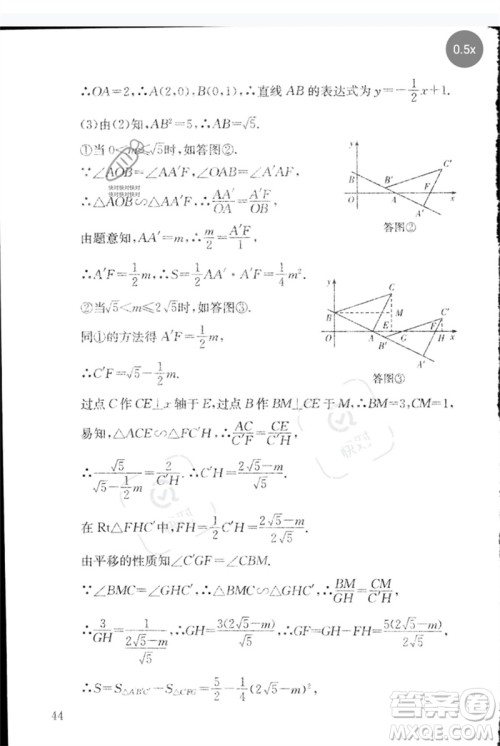 0.5x
∴OA=2,∴A(2,0),B(0,1),∴直线 AB 的表达式为 y=-1/2x+1.
(3)由(2)知,AB²=5,∴AB=√5.
①当 0<m≤√5时,如答图②.
∵∠AOB=∠AA′F,∠OAB=∠A′AF,
∴△AOB∽△AA′F,∴AA′/OA=A′F/OB,
由题意知,AA′=m,∴m/2=A′F/1,
∴A′F=1/2m,∴S=1/2AA′·A′F=1/4m².
答图②
②当√5<m≤2√5时,如答图③.
同①的方法得 A′F=1/2m,
∴C′F=√5-1/2m,
答图③
过点 C 作 CE⊥x 轴于 E,过点 B 作 BM⊥CE 于 M,∴BM=3,CM=1,
易知,△ACE∽△FC′H,∴AC/C′F=CE/C′H,
∴√5/(√5-1/2m)=2/C′H,∴C′H=(2√5-m)/√5.
在 Rt△FHC′中,FH=1/2C′H=(2√5-m)/2√5.
由平移的性质知∠C′GF=∠CBM.
∵∠BMC=∠GHC′,∴△BMC∽△GHC′,∴BM/GH=CM/C′H,
∴3/GH=1/((2√5-m)/√5),∴GH=3(2√5-m)/√5,∴GF=GH-FH=5(2√5-m)/2√5,
∴S=S△A′B′C′-S△C′FG=5/2-1/4(2√5-m)²,
44